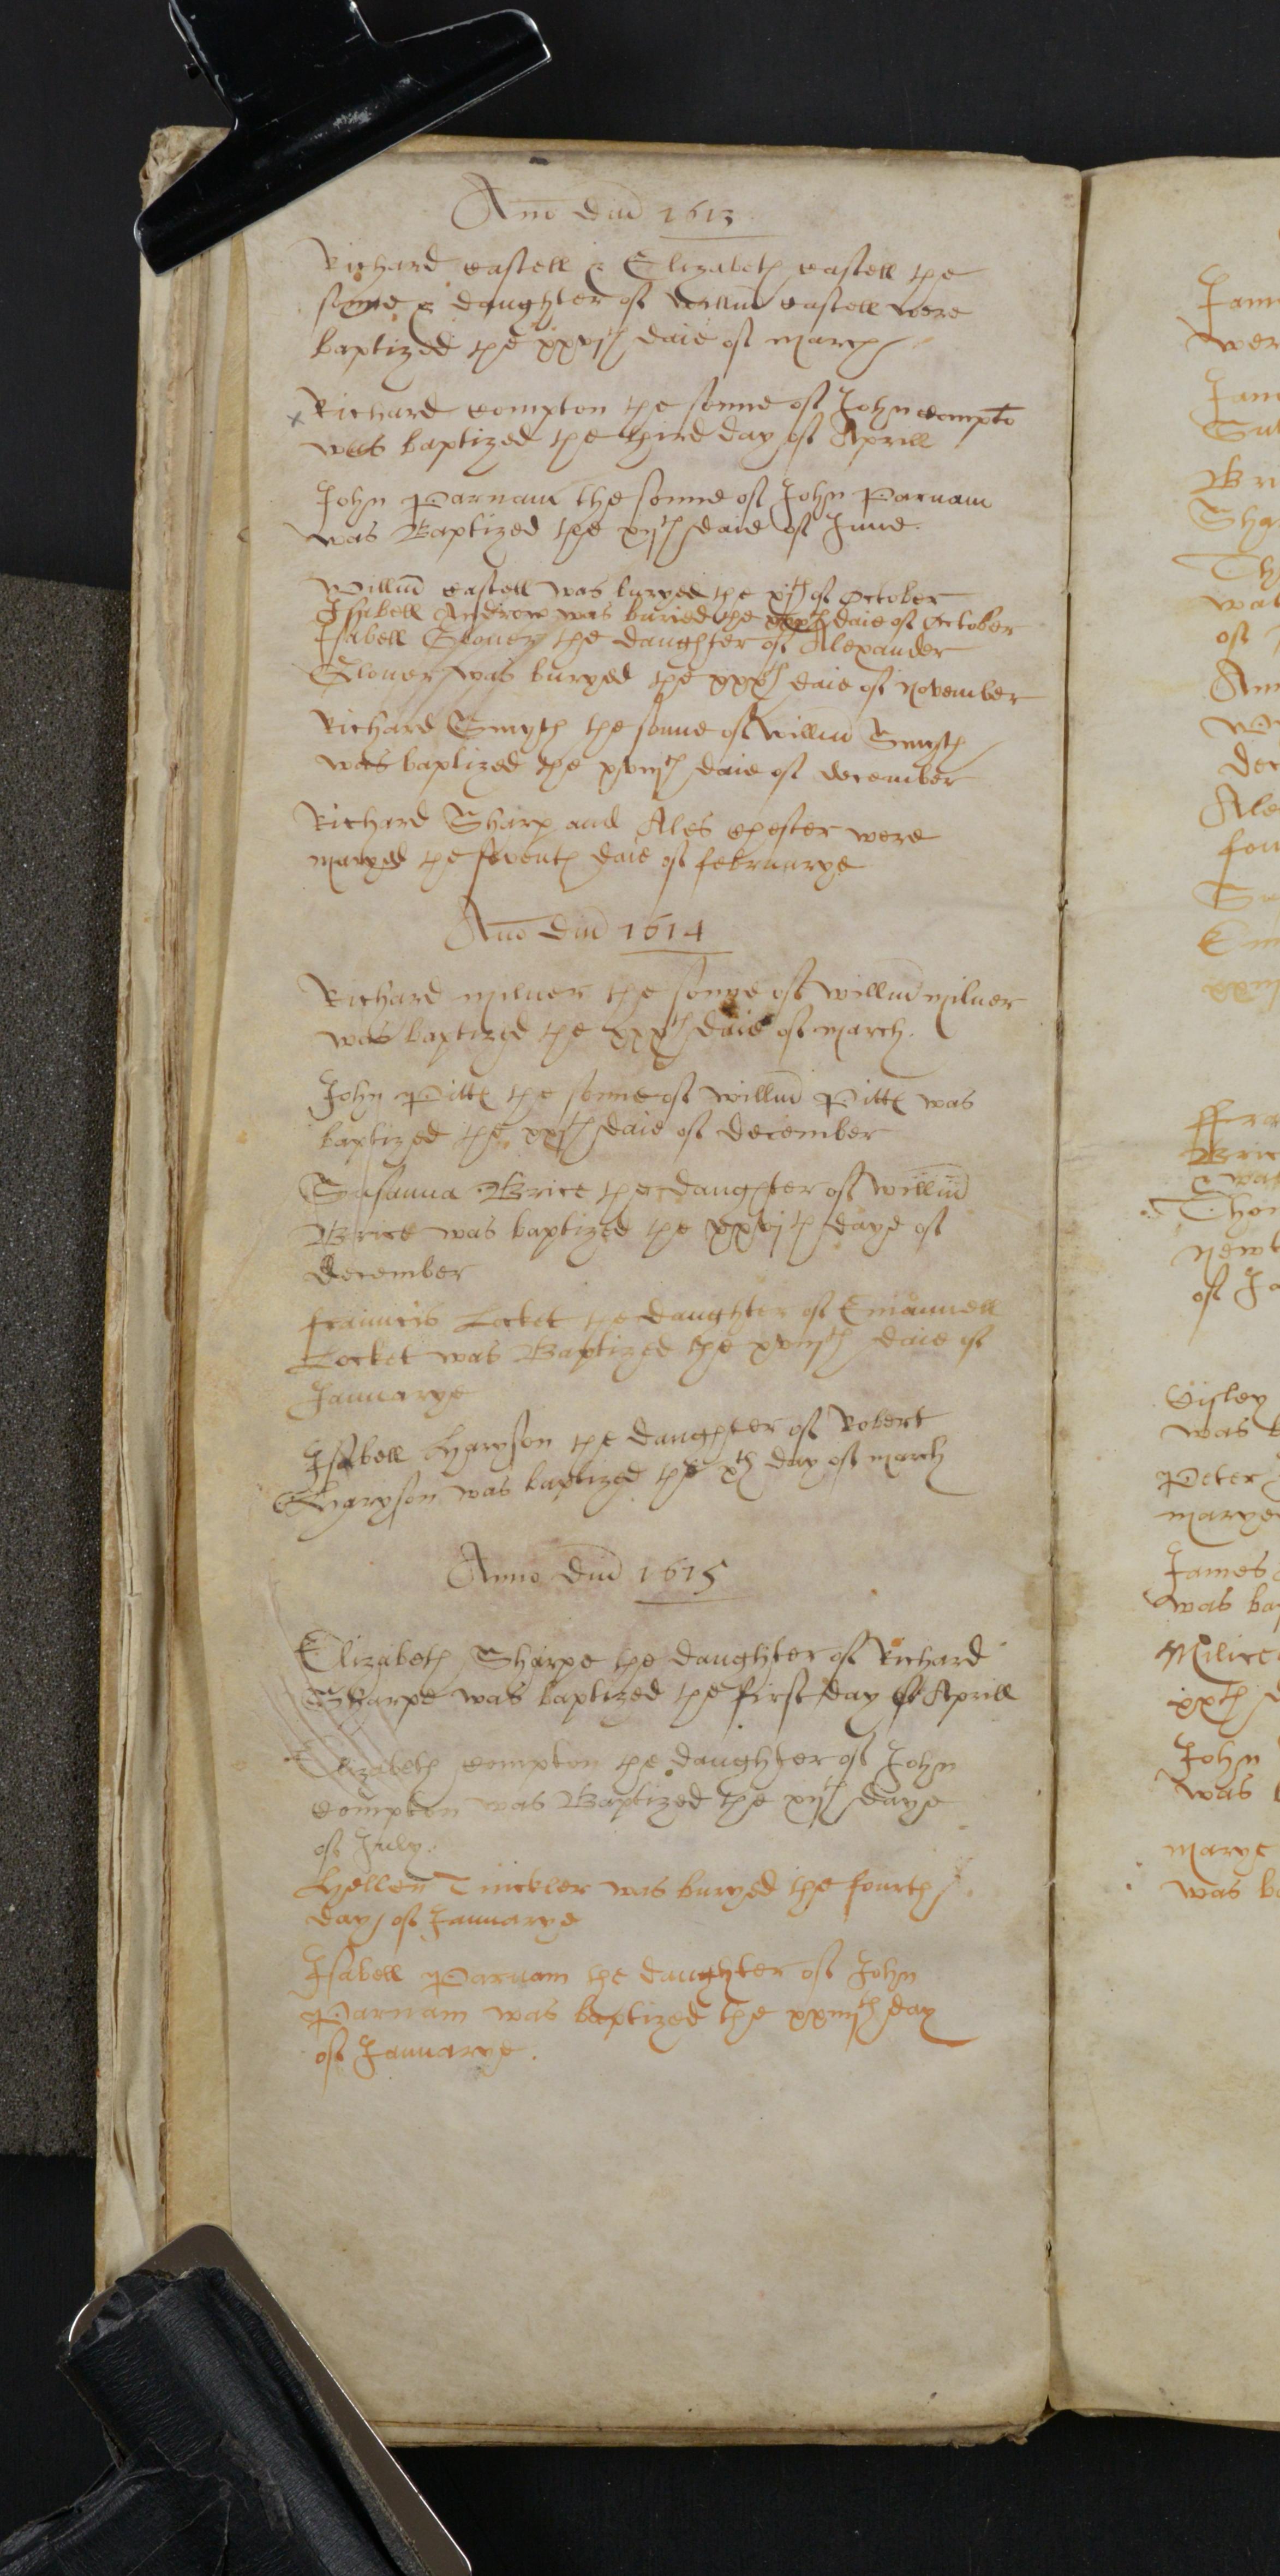 Ano dni 1613
Richard castell & Elizabeth castell the
sonne & daughter of willm castell were
baptized the xxvjth daie of march
x Richard compton the sonne of John compto
was baptized the third day of Aprill
John Parnam the sonne of John Parnam
was Baptized the xijth daie of June.
Willm castell was buryed the xjth of October
Isabell Androw was buried the daie of October
Isabell Glover the daughter of Alexander
Glouer was buryed the xxxth daie of november
Richard Smyth the sonne of willm Smyth
was baptized the xviijth daie of december
Richard Sharp and Ales chester were
maryed the seventh daie of februarye
Ano dni 1614
Richard milner the sonne of willm milner
was baptized the xxxth daie of march.
John Pitt the sonne of willm Pitt was
baptized the xxjth daie of december
Susanna Brice the daughter of willm
Brice was baptized the xxvjth daye of
december
frauncis Locket the daughter of Emanuell
Locket was Baptized the xviijth daie of
Januarye
Isabell Haryson the daughter of Robert
Haryson was baptized the xth day of march
Anno dni 1615
Elizabeth Sharpe the daughter of Richard
Sharpe was baptized the first day of Aprill
Elizabeth compton the daughter of John
compton was Baptized the xijth daye
of July.
Hellen Tinckler was buryed the fourth
day of Januarye
Isabell Parnam the daughter of John
Parnam was baptized the xxiijth day
of Januarye.
Jam
wer
Jam
Bri
Sha
Th
was
of
Ann
dec
Ale
ffra
Bric
& was
Tho
newt
of Ja
Cisley
was b
Peter
marye
James
was bap
Milice
xxth
John
was
marye
was b